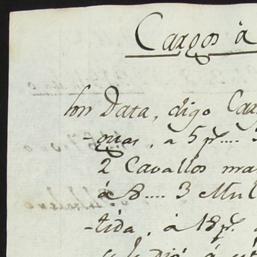 Cargos à
Son Data, digo Car
guas, a 5 p.....
2 Cavallos ma
à 8.... 3 Mul
tida, à 18 p.